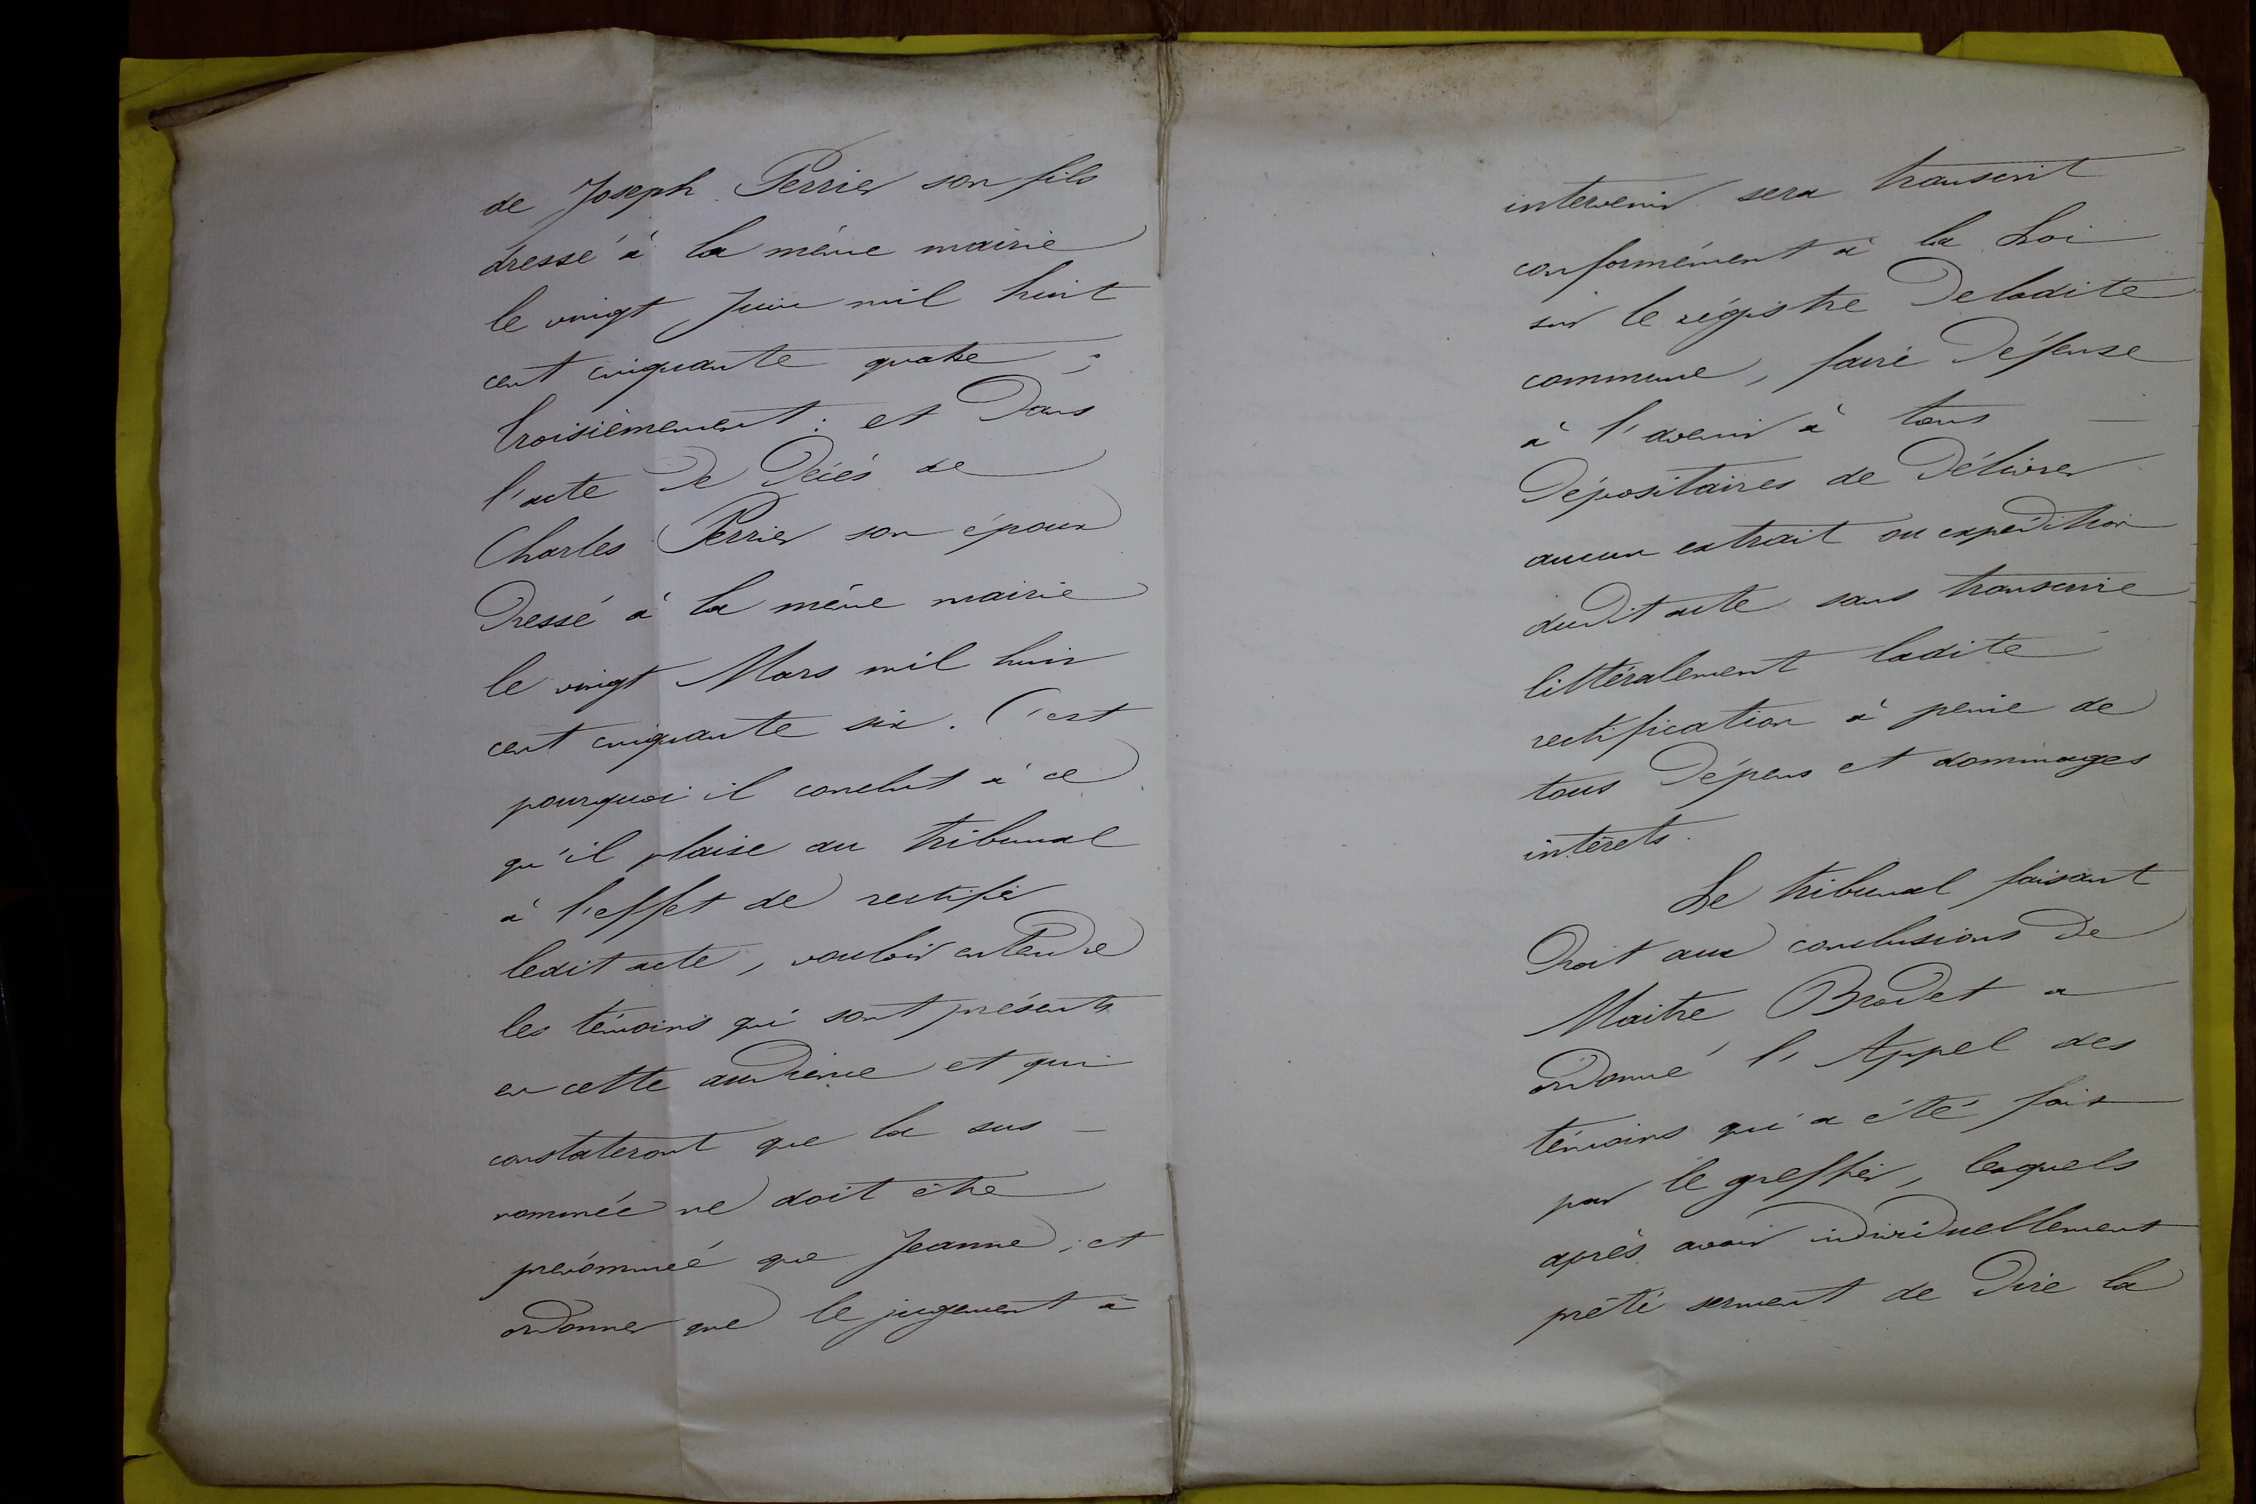 de Joseph Perrier son fils
dressé à la même mairie
le vingt Juin mil huit
cent cinquante quatre ;
troisièmement : et Dans
l'acte De Décés de
Charles Perrier son époux
Dressé à la même mairie
le vingt Mars mil huit
cent cinquante six. C'est
pourquoi il conclut à ce
qu'il plaise au tribunal
à l'effet de rectifier
ledit acte, vouloir entendre
les témoins qui sont présents
en cette audience et qui
constateront que la sus
nommée ne doit être
prénommée que Jeanne, et
ordonner que le jugement à
intervenir sera transcrit
conformément à la Loi
sur le régistre De ladite
commune, faire Défense
à l'avenir à tous
Dépositaires de Délivrer
aucun extrait ou expédition
dudit acte sans transcrire
littéralement ladite
rectification à peine de
tous Dépens et dommages
intérêts.
Le tribunal faisant
Droit aux conclusions De
Maitre Brodet a
ordonné l'Appel des
témoins qui a été fait
par le greffier, lesquels
après avoir individuellement
prêté serment de Dire la